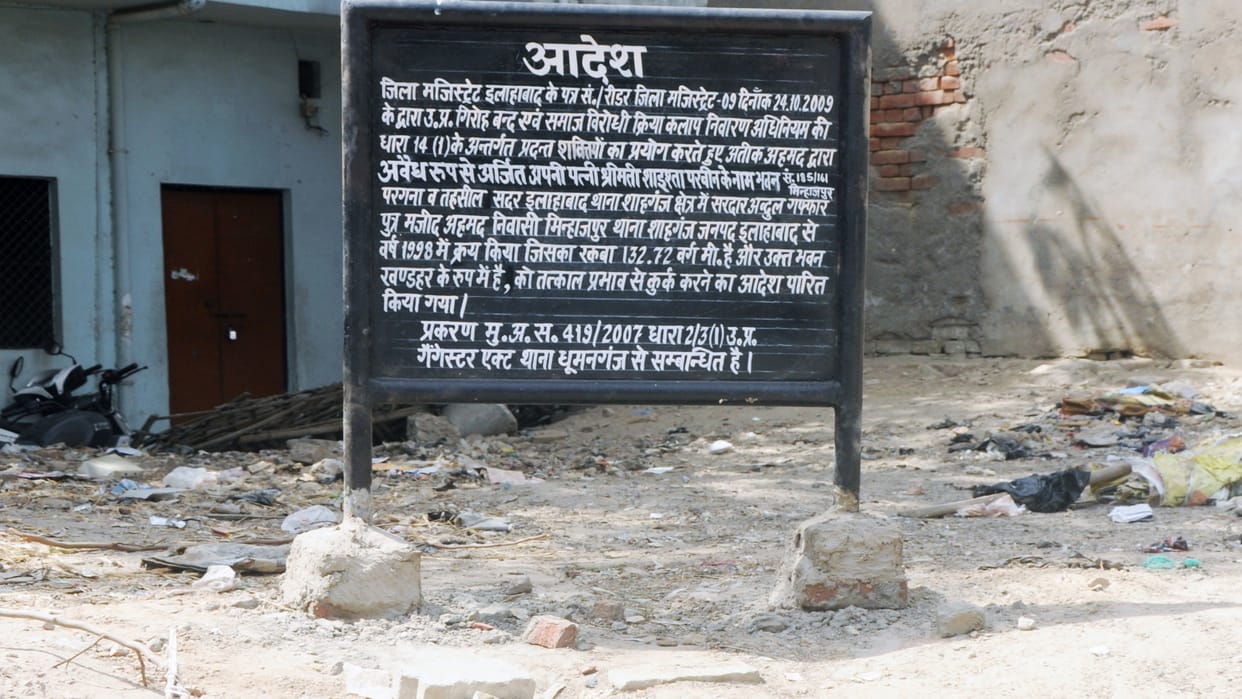 आदेश
जिला मजिस्ट्रेट इलाहाबाद के पत्र सं./रीडर जिला मजिस्ट्रेट-09 दिनाँक 24.10.2009
के द्वारा उ.प्र. गिरोह बन्द एवं समाज विरोधी क्रिया कलाप निवारण अधिनियम की
धारा 14 (1) के अन्तर्गत प्रदन्त शक्तियों का प्रयोग करते हुए अतीक अहमद द्वारा
अवैध रुप से अर्जित अपनी पत्नी श्रीमती शाइस्ता परवीन के नाम भवन सं. 185/161 मिन्हाजपुर
परगना व तहसील सदर इलाहाबाद थाना शाहगंज क्षेत्र में सरदार अब्दुल गफ्फार
पुत्र मजीद अहमद निवासी मिन्हाजपुर थाना शाहगंज जनपद इलाहाबाद से
वर्ष 1998 में क्रय किया जिसका रकबा 132.72 वर्ग मी. है और उक्त भवन
खण्डहर के रुप में है, को तत्काल प्रभाव से कुर्क करने का आदेश पारित
किया गया।
प्रकरण मु.अ.स. 419/2007 धारा 2/3(1) उ.प्र.
गैंगेस्टर एक्ट थाना धूमनगंज से सम्बन्धित है।